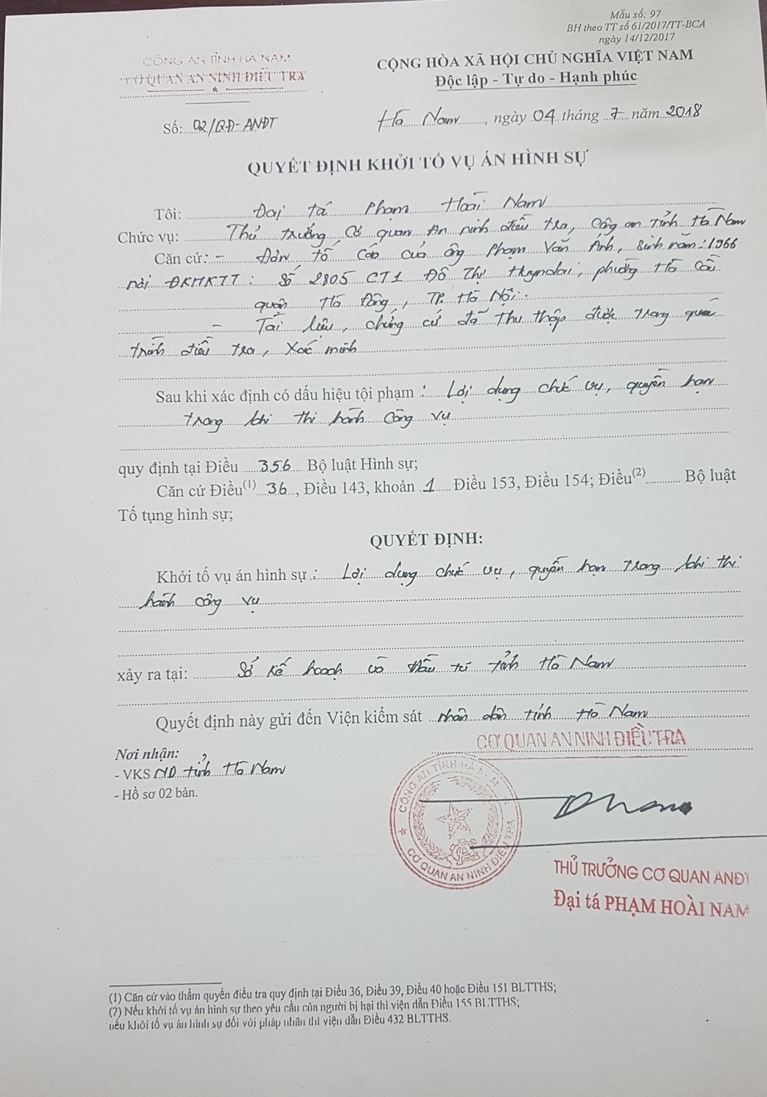 Mẫu số: 97
BH theo TT số 61/2017/TT-BCA
ngày 14/12/2017
CÔNG AN TỈNH HÀ NAM
CƠ QUAN AN NINH ĐIỀU TRA
CỘNG HÒA XÃ HỘI CHỦ NGHĨA VIỆT NAM
Độc lập - Tự do - Hạnh phúc
Số: 02/QĐ-ANĐT
Hà Nam, ngày 04 tháng 7 năm 2018
QUYẾT ĐỊNH KHỞI TỐ VỤ ÁN HÌNH SỰ
Tôi: Đại tá Phạm Hoài Nam
Chức vụ: Thủ trưởng, Cơ quan An ninh điều tra, Công an tỉnh Hà Nam
Căn cứ: - Đơn tố cáo của ông Phạm Văn Ánh, Sinh năm: 1966
nơi ĐKHKTT: Số 2805 CT1 Đô Thị Huyndai, phường Hà Cầu
quận Hà Đông, TP. Hà Nội.
- Tài liệu, chứng cứ đã thu thập được trong quá
trình điều tra, xác minh
Sau khi xác định có dấu hiệu tội phạm: Lợi dụng chức vụ, quyền hạn
trong khi thi hành công vụ
quy định tại Điều 356 Bộ luật Hình sự;
Căn cứ Điều(1) 36, Điều 143, khoản 1 Điều 153, Điều 154; Điều(2) Bộ luật
Tố tụng hình sự;
QUYẾT ĐỊNH:
Khởi tố vụ án hình sự: Lợi dụng chức vụ, quyền hạn trong khi thi
hành công vụ
xảy ra tại: Sở Kế hoạch và Đầu tư tỉnh Hà Nam
Quyết định này gửi đến Viện kiểm sát nhân dân tỉnh Hà Nam
Nơi nhận:
- VKSND tỉnh Hà Nam
- Hồ sơ 02 bản.
CƠ QUAN AN NINH ĐIỀU TRA
CÔNG AN TỈNH HÀ NAM
CƠ QUAN AN NINH ĐIỀU TRA
THỦ TRƯỞNG CƠ QUAN ANĐT
Đại tá PHẠM HOÀI NAM
(1) Căn cứ vào thẩm quyền điều tra quy định tại Điều 36, Điều 39, Điều 40 hoặc Điều 151 BLTTHS;
(2) Nếu khởi tố vụ án hình sự theo yêu cầu của người bị hại thì viện dẫn Điều 155 BLTTHS;
nếu khởi tố vụ án hình sự đối với pháp nhân thì viện dẫn Điều 432 BLTTHS.